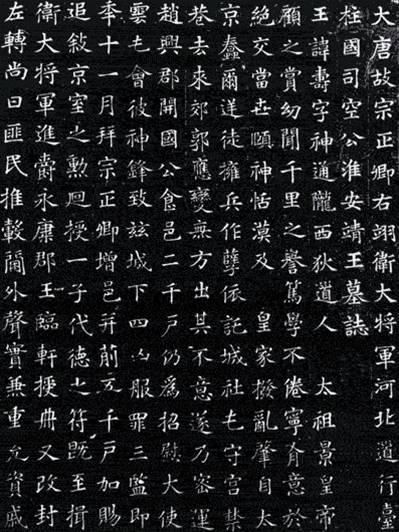 大唐故宗正卿右翊衛大將軍河北道行臺
柱國司空公淮安靖王墓誌
王諱壽字神通隴西狄道人 太祖景皇帝
顧之賞幼聞千里之譽篤學不倦寧意於
絕交當世頤神恬漠及 皇家撥亂肇自太
京蠢爾逆徒擁兵作孽依託城社屯守宮
巷去來郊郭應變無方出其不意遂乃密運
趙興郡開國公食邑二千戶仍為招慰大使
雲屯會彼神鋒致茲城下四凶服罪三監即
年十一月拜宗正卿增邑并前五千戶加賜
追敘京室之勳迴授一子代德之符既至揖
衛大將軍進爵永康郡王臨軒授冊又改封
左轉尚曰匪民推轂閫外聲實兼重允資戚